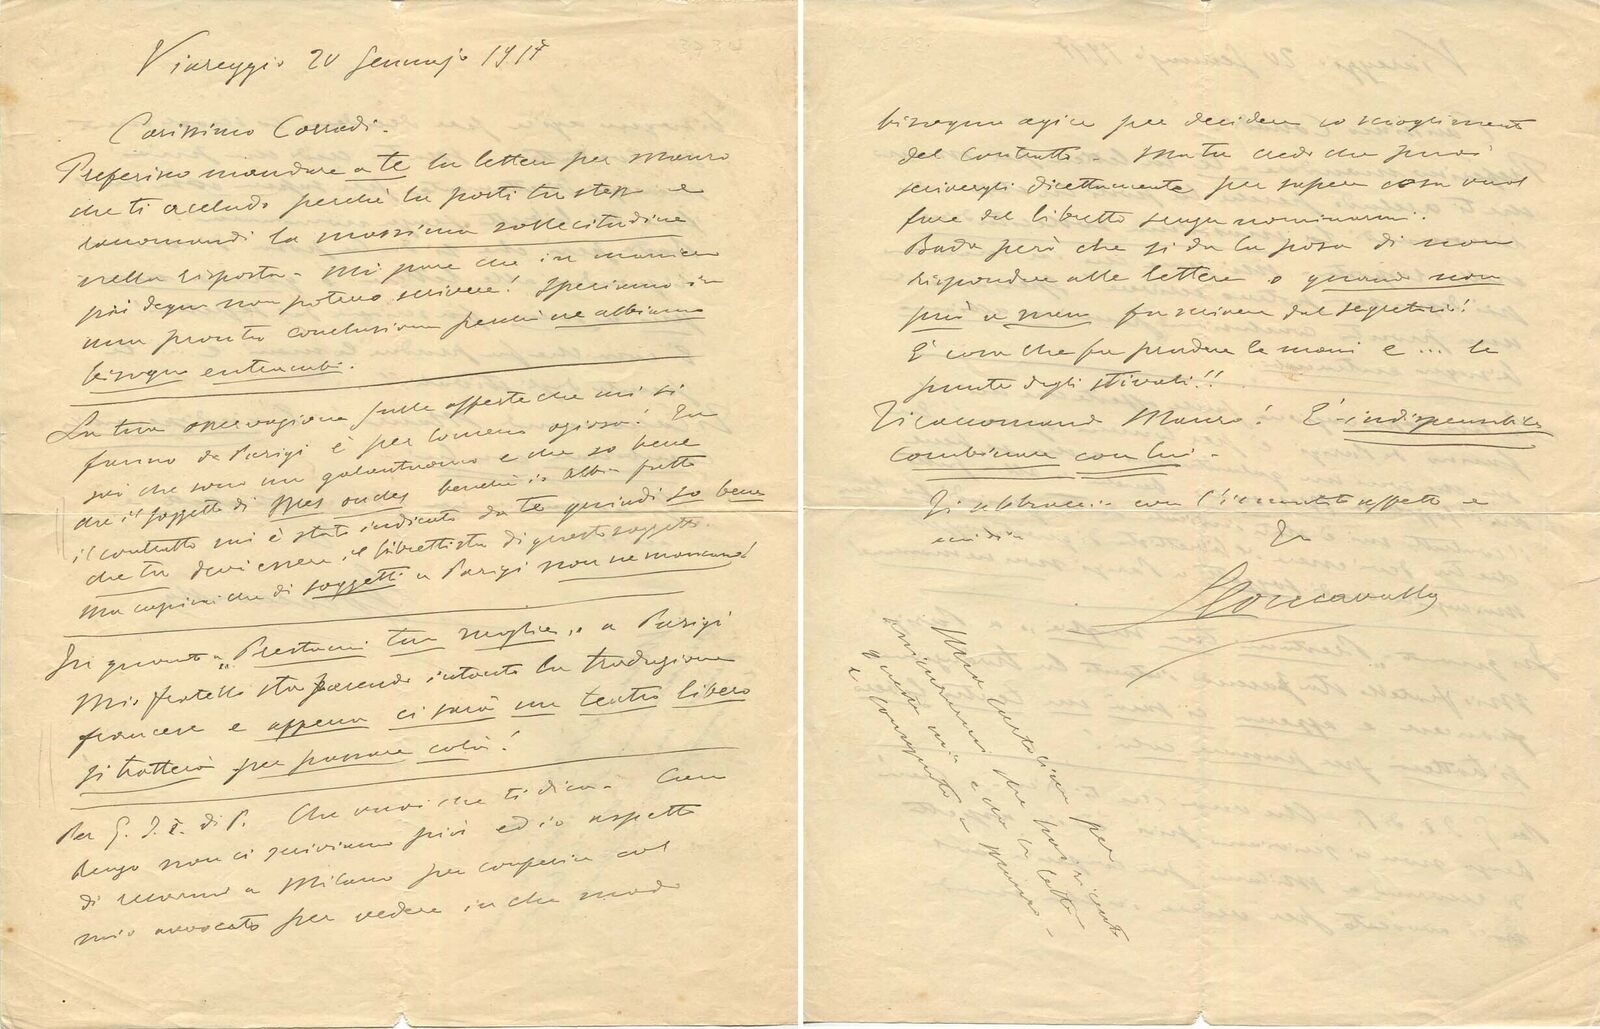 Viareggio 20 Gennajo 1917
Carissimo Corradi.
Preferisco mandare a te la lettera per Mauro
che ti accludo perchè la porti tu stesso e
raccomandi la massima sollecitudine
nella risposta. Mi pare che in maniera
più degna non potevo scrivere! Speriamo in
una pronta conclusione perchè ne abbiamo
bisogno entrambi.
La tua osservazione sulle offerte che mi si
fanno da Parigi è per lo meno oziosa! Tu
sai che sono un galantuomo e che so bene
che il soggetto di benchè io abbia fatto
il contratto mi è stato indicato da te quindi so bene
che tu devi essere il librettista di questo soggetto.
Ma capirai che di soggetti a Parigi non ne mancano!
In quanto a "Prestami tua moglie" a Parigi
Mio fratello sta facendo intanto la traduzione
francese e appena ci sarà un teatro libero
si tratterà per passare colà!
Per G. I. di P. Che vuoi che ti dica.
non ci scriviamo più ed io aspetto
di recarmi a Milano per conferire col
mio avvocato per vedere in che modo
bisogna agire per decidere lo scioglimento
del contratto. Ma tu credo che puoi
scrivergli direttamente per sapere cosa vuol
fare del libretto senza nominarmi.
Bada però che si dà la posa di non
rispondere alle lettere o quando non
può a meno fa scrivere dal segretario!
È cosa che fa prudere le mani e ... le
punte degli stivali!!
Ti raccomando Mauro! È indispensabile
combinare con lui.
Ti abbraccio con l'affetto e
Tuo
RLeoncavallo
Una cartolina per
assicurarmi che hai ricevuto
questa mia e dato la lettera
e consegnato a Mauro.